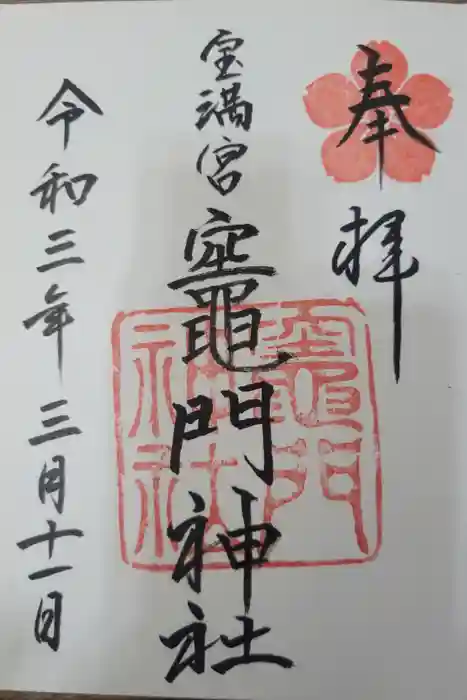 奉拝
宝満宮
竈門神社
竈門神社
令和三年三月十一日